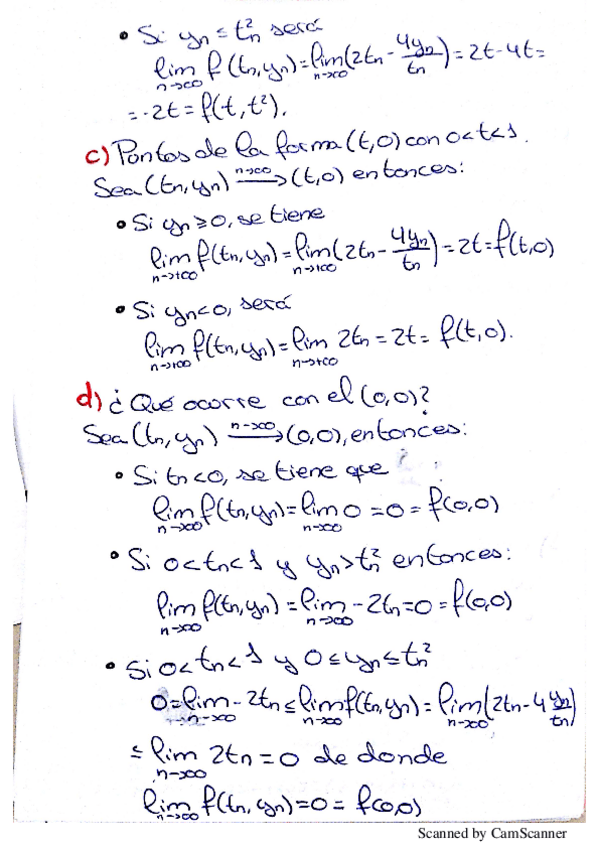 • Si yₙ ≤ tₙ² será
lim_{n→∞} f(tₙ,yₙ) = lim_{n→∞} (2tₙ - 4yₙ/tₙ) = 2t - 4t =
= -2t = f(t,t²).
c) Pontos de la forma (t,0) con 0<t<1.
Sea (tₙ,yₙ) —n→∞→ (t,0) entonces:
• Si yₙ ≥ 0, se tiene
lim_{n→+∞} f(tₙ,yₙ) = lim_{n→+∞} (2tₙ - 4yₙ/tₙ) = 2t = f(t,0)
• Si yₙ < 0, será
lim_{n→+∞} f(tₙ,yₙ) = lim_{n→+∞} 2tₙ = 2t = f(t,0).
d) ¿Qué ocurre con el (0,0)?
Sea (tₙ,yₙ) —n→∞→ (0,0), entonces:
• Si tₙ<0, se tiene que
lim_{n→∞} f(tₙ,yₙ) = lim_{n→∞} 0 = 0 = f(0,0)
• Si 0<tₙ<1 y yₙ>tₙ² entonces:
lim_{n→∞} f(tₙ,yₙ) = lim_{n→∞} -2tₙ = 0 = f(0,0)
• Si 0<tₙ<1 y 0≤yₙ≤tₙ²
0 = lim_{n→∞} -2tₙ ≤ lim_{n→∞} f(tₙ,yₙ) = lim_{n→∞} (2tₙ - 4 yₙ/tₙ)
≤ lim_{n→∞} 2tₙ = 0 de donde
lim_{n→∞} f(tₙ,yₙ) = 0 = f(0,0)
Scanned by CamScanner